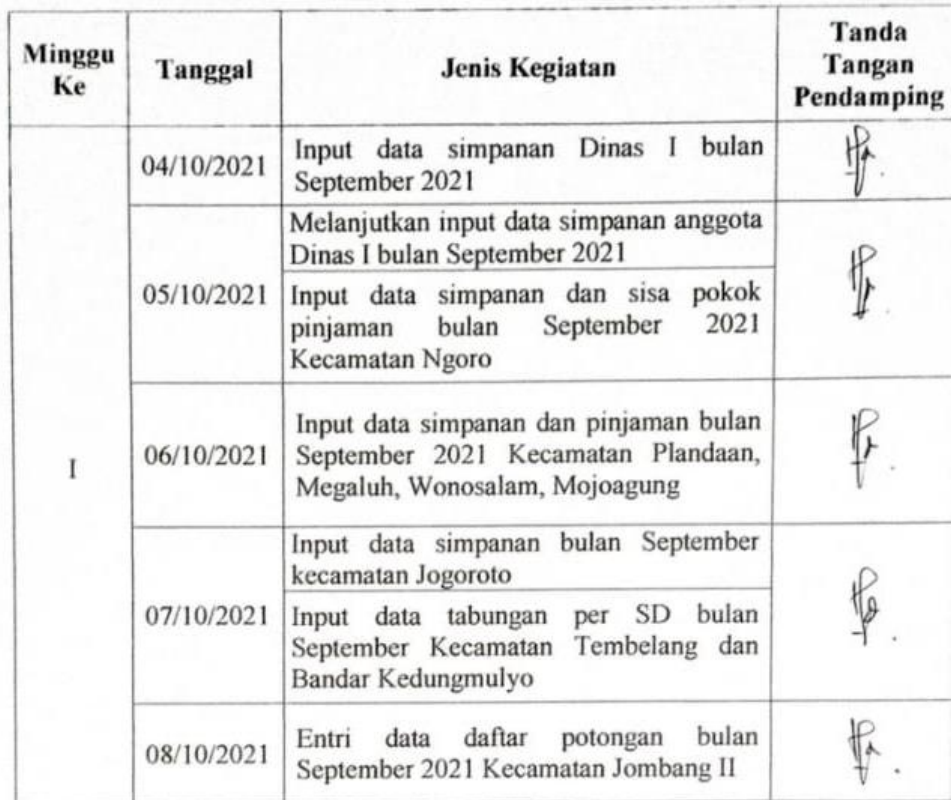 Minggu
Ke
Tanggal
Jenis Kegiatan
Tanda
Tangan
Pendamping
I
04/10/2021
Input data simpanan Dinas I bulan
September 2021
05/10/2021
Melanjutkan input data simpanan anggota
Dinas I bulan September 2021
Input data simpanan dan sisa pokok
pinjaman bulan September 2021
Kecamatan Ngoro
06/10/2021
Input data simpanan dan pinjaman bulan
September 2021 Kecamatan Plandaan,
Megaluh, Wonosalam, Mojoagung
07/10/2021
Input data simpanan bulan September
kecamatan Jogoroto
Input data tabungan per SD bulan
September Kecamatan Tembelang dan
Bandar Kedungmulyo
08/10/2021
Entri data daftar potongan bulan
September 2021 Kecamatan Jombang II